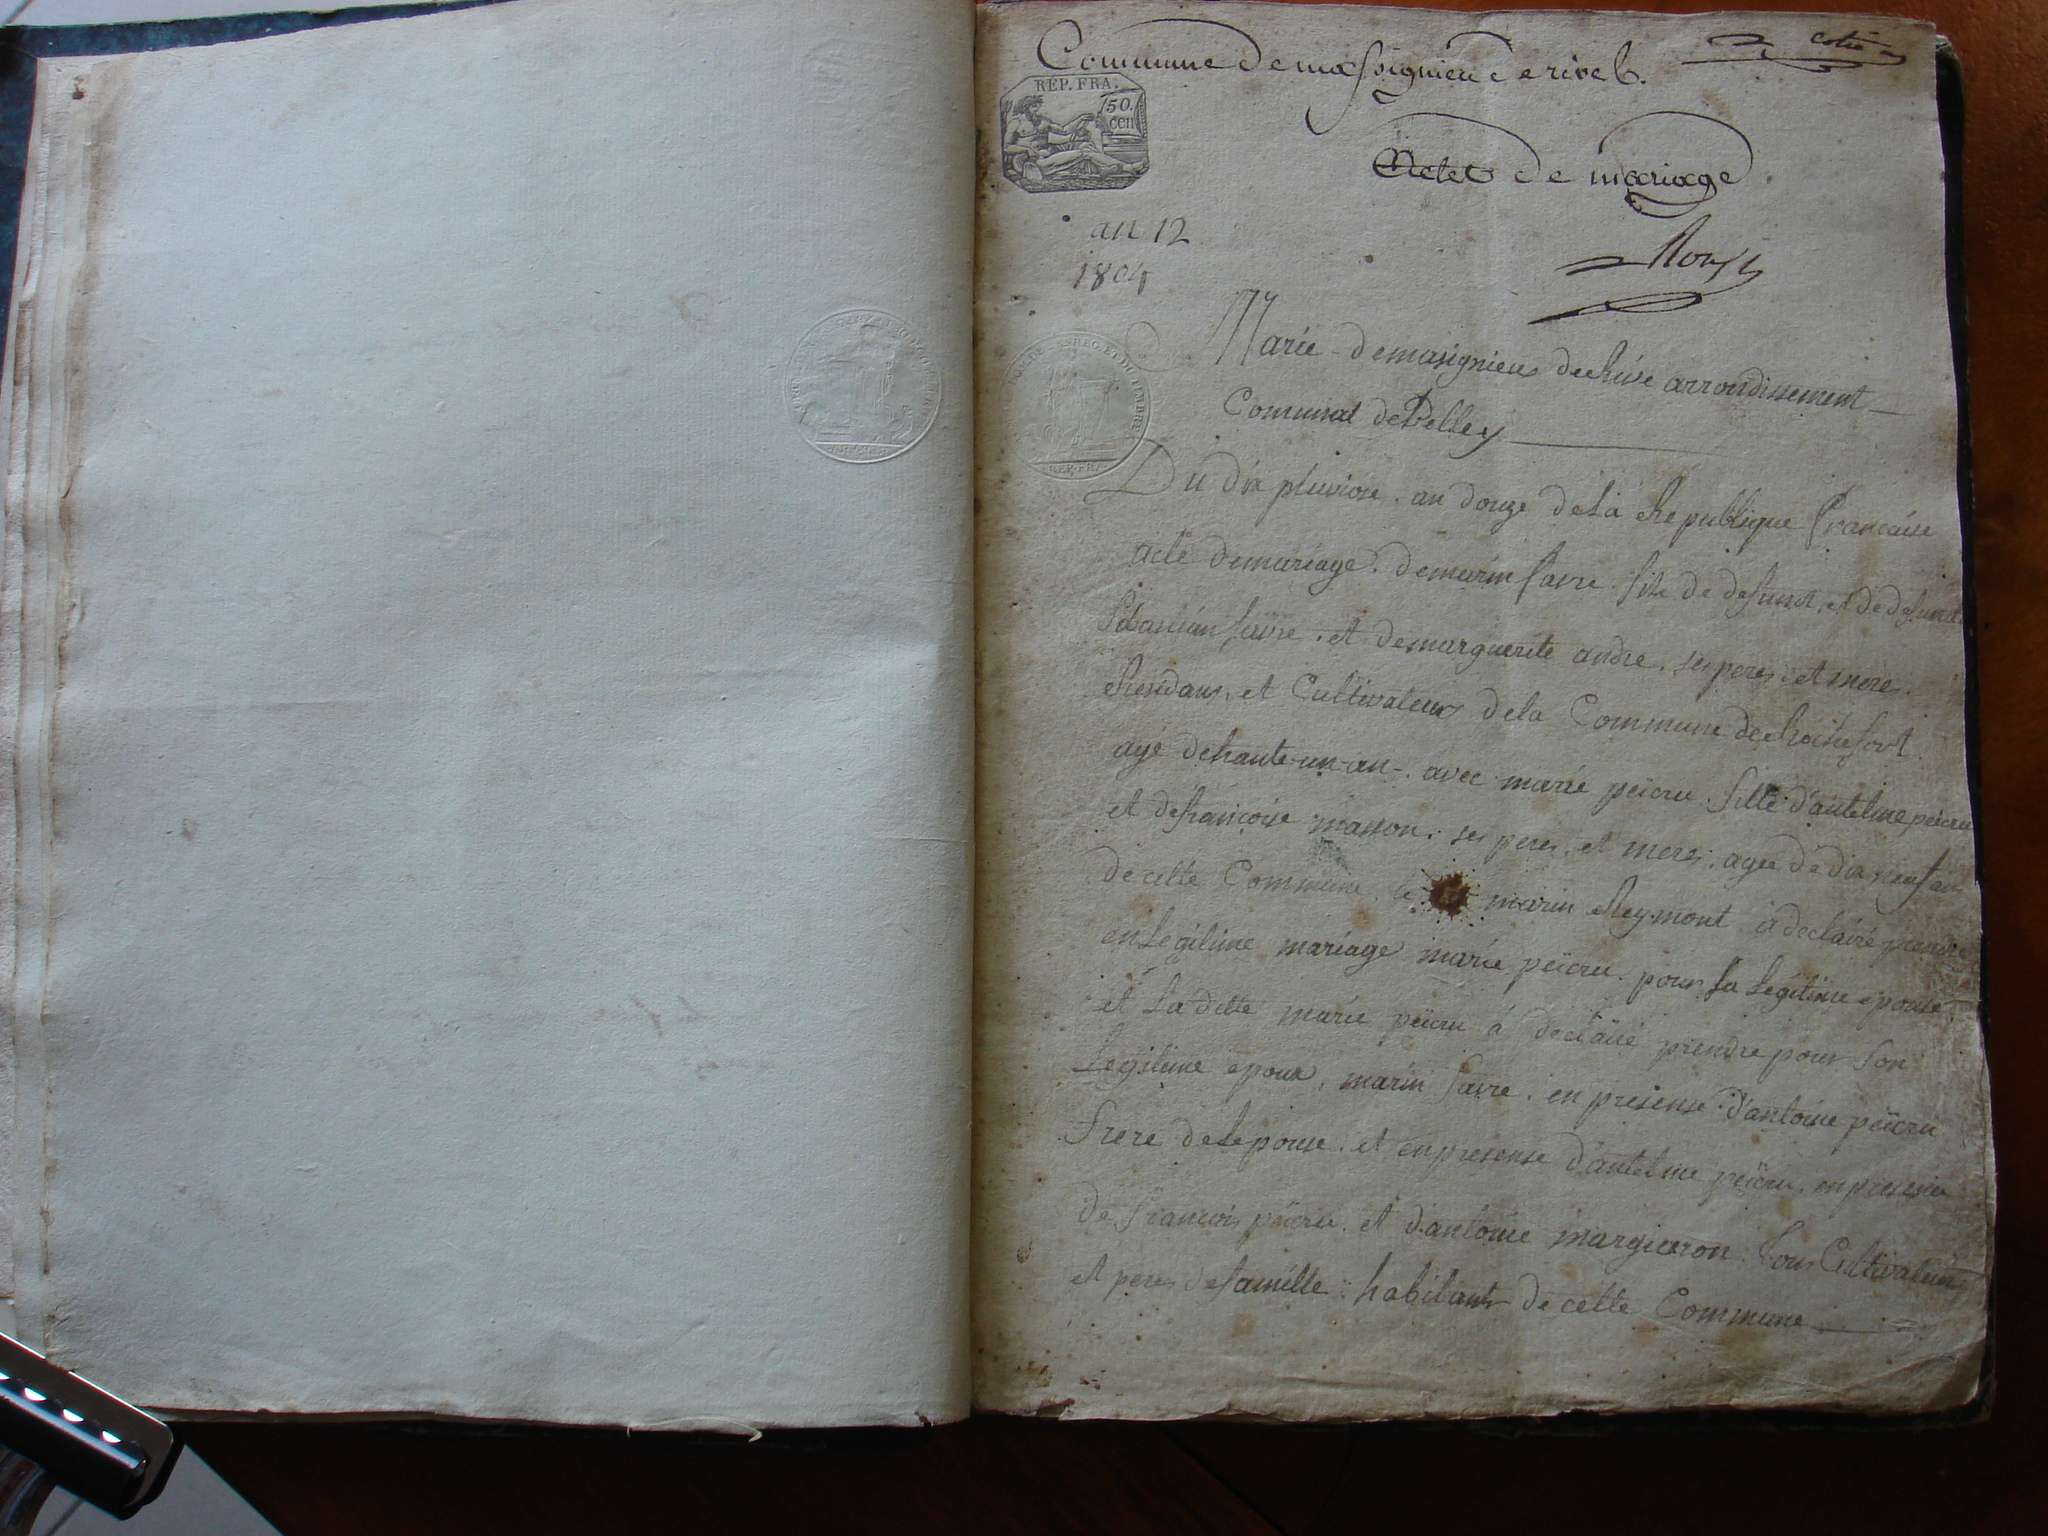 Commune de massignieu de rives.
cotte
REP. FRA.
50.
cen
Actes de mariage
an 12
1804
Marie demasignieus derhive arrondissement
Communal de Belley
Du dix pluviose. an douze dela Republique francaise
acte demariage. demarin favre. fils de defunct, et de defunct
Sebastian favre. et demarguerite andre. ses peres. et meres.
Residans, et Cultivateurs dela Commune deRochefort
agé detrante-un-an-. avec marie peicru fille d'antelme peicru
et defrançoise masson. ses peres. et meres. agée de dix neuf an
de cette Commune le marin Reymont à declairé prendre
en Legitime mariage marie peicru. pour sa Legitime epouse
et La ditte marie peicru à declairé prendre pour son
Legitime epoux, marin favre. en presense d'antoine peicru
frere delepouse. et enpresense d'antelme peicru. en presense
de francois peicru. et d'antoine margueron tous Cultivateurs
et peres defamille habitant de cette Commune